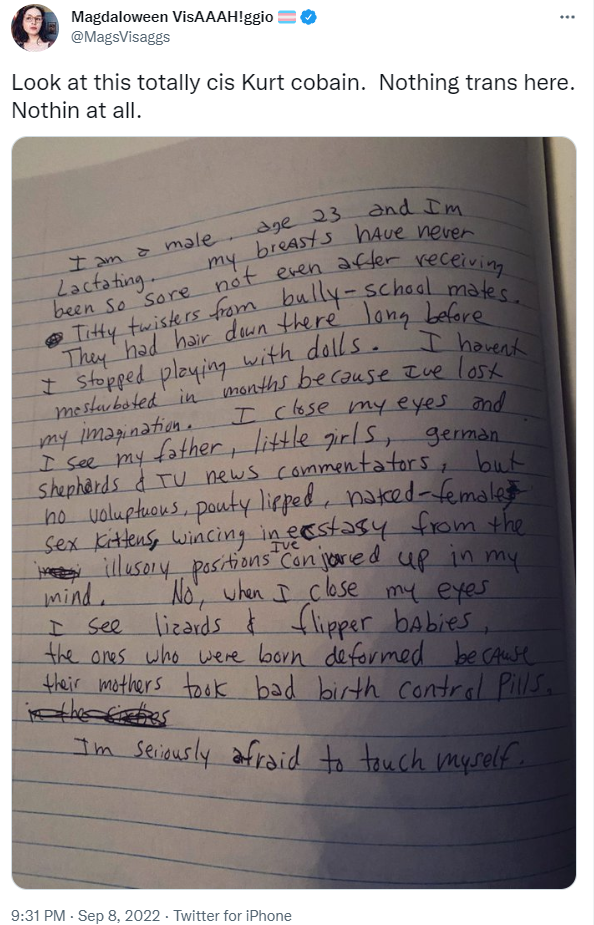 Magdaloween VisAAAH!ggio
@MagsVisaggs
Look at this totally cis Kurt cobain.  Nothing trans here.
Nothin at all.
I am a male. age 23 and Im
Lactating. my breasts have never
been so sore not even after receiving
Titty twisters from bully-school mates.
They had hair down there long before
I stopped playing with dolls. I havent
masturbated in months because Ive lost
my imagination. I close my eyes and
I see my father, little girls, german
shephards & TV news commentators, but
no voluptuous, pouty lipped, naked-female
sex kittens, wincing in ecstasy from the
illusory positions Ive conjored up in my
mind. No, when I close my eyes
I see lizards & flipper babies,
the ones who were born deformed because
their mothers took bad birth control pills.
Im seriously afraid to touch myself.
9:31 PM · Sep 8, 2022 · Twitter for iPhone